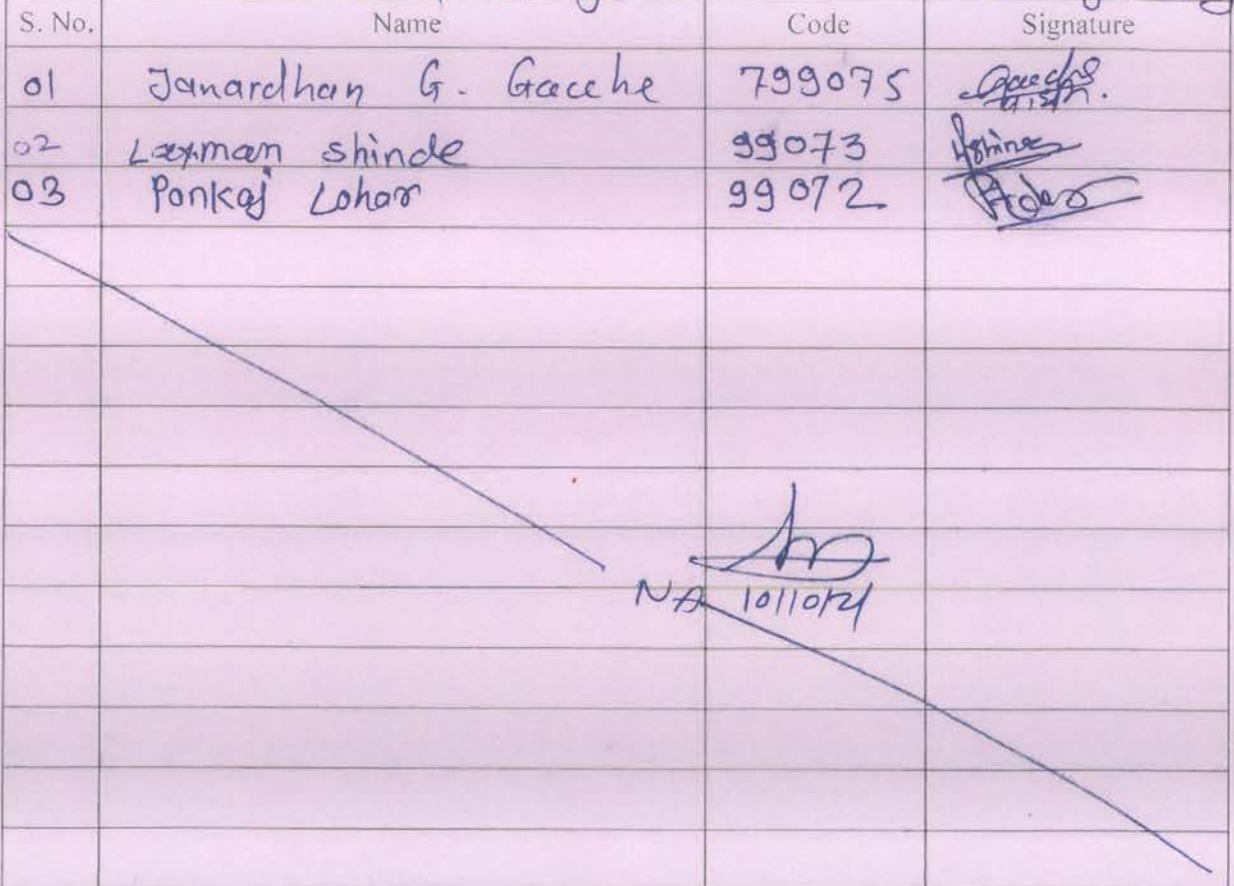 S. No. Name Code Signature
01 Janardhan G. Gacche 799075
02 Laxman shinde 99073
03 Pankaj Lohar 99072
NA 10/10/21